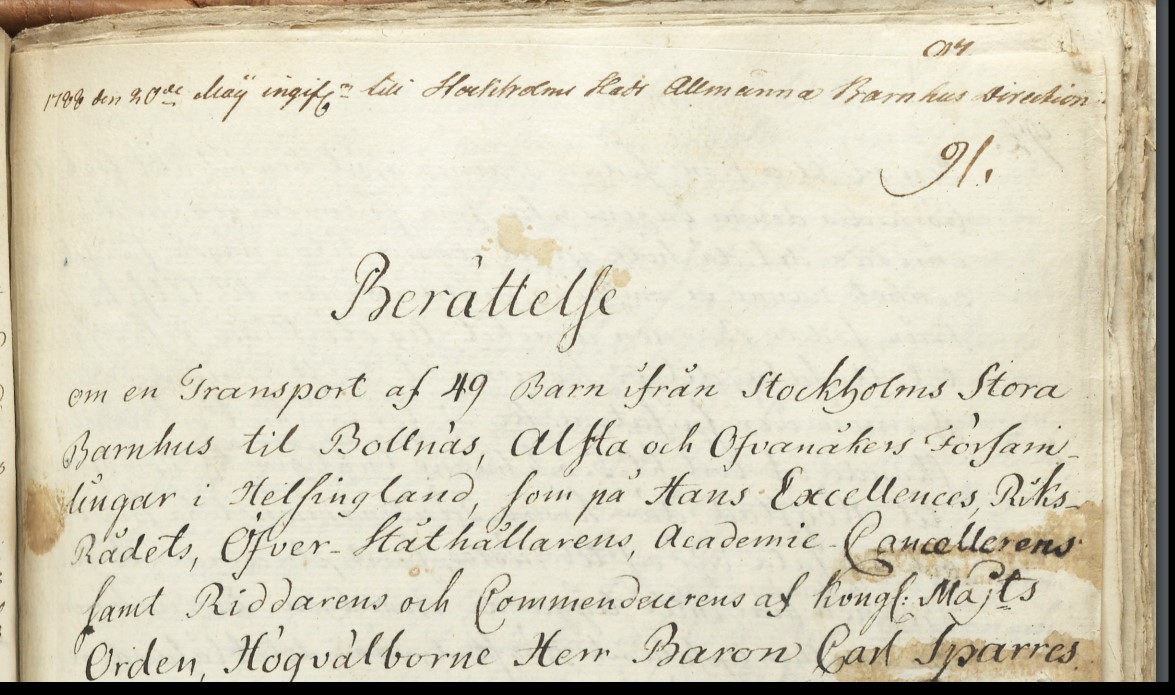 1788 den 20de Maÿ ingifn till Stockholms Stads Allmänna Barnhus Direction.
91.
Berättelse
om en Transport af 49 Barn ifrån Stockholms Stora
Barnhus til Bollnäs, Alfta och Ofvanåkers Försam-
lingar i Helsingland, som på Hans Excellences, Riks-
Rådets, Öfver-Ståthållarens, Academie-Cancellerens
samt Riddarens och Commendeurens af Kongl: Majts
Orden, Högvälborne Herr Baron Carl Sparres